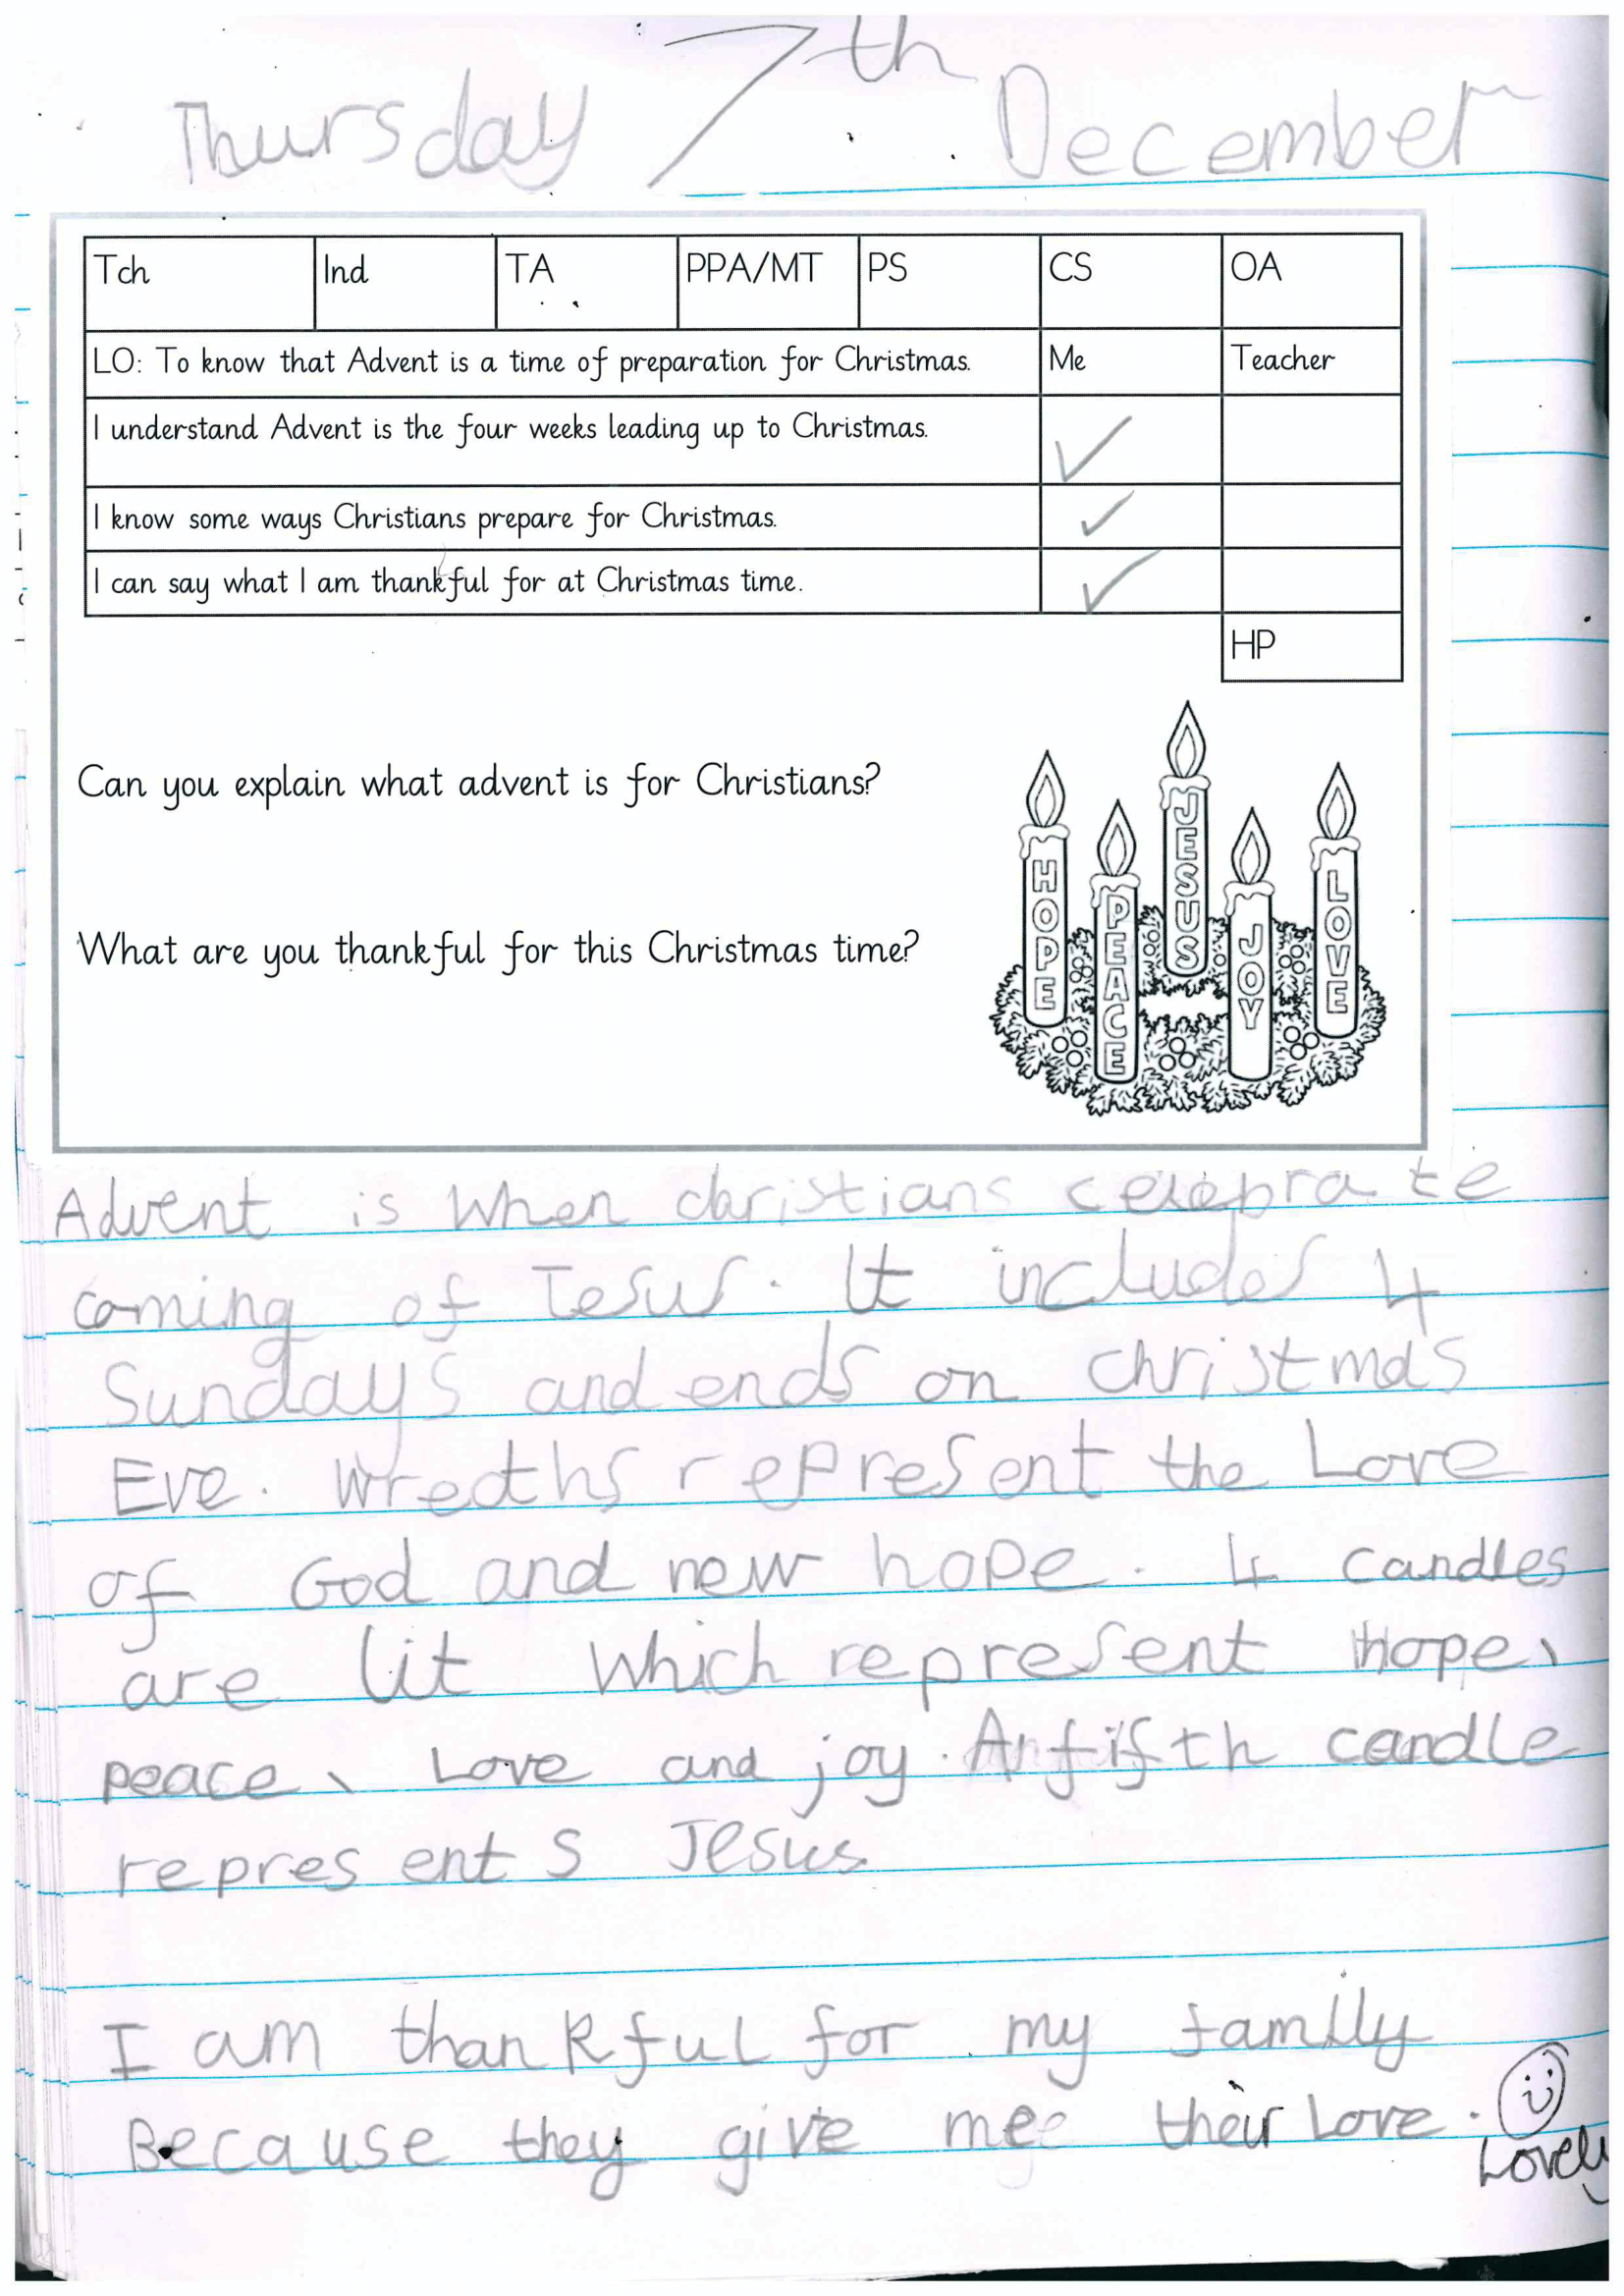 Thursday 7th December
Tch Ind TA PPA/MT PS CS OA
LO: To know that Advent is a time of preparation for Christmas. Me Teacher
I understand Advent is the four weeks leading up to Christmas. ✓
I know some ways Christians prepare for Christmas. ✓
I can say what I am thankful for at Christmas time. ✓
HP
Can you explain what advent is for Christians?
What are you thankful for this Christmas time?
HOPE
PEACE
JESUS
JOY
LOVE
Advent is when christians celebrate
coming of Jesus. It includes 4
Sundays and ends on christmas
Eve. Wreaths represent the Love
of God and new hope. 4 candles
are lit which represent hope,
peace, Love and joy. A fifth candle
represents Jesus
I am thankful for my family
Because they give me their Love.
Lovely